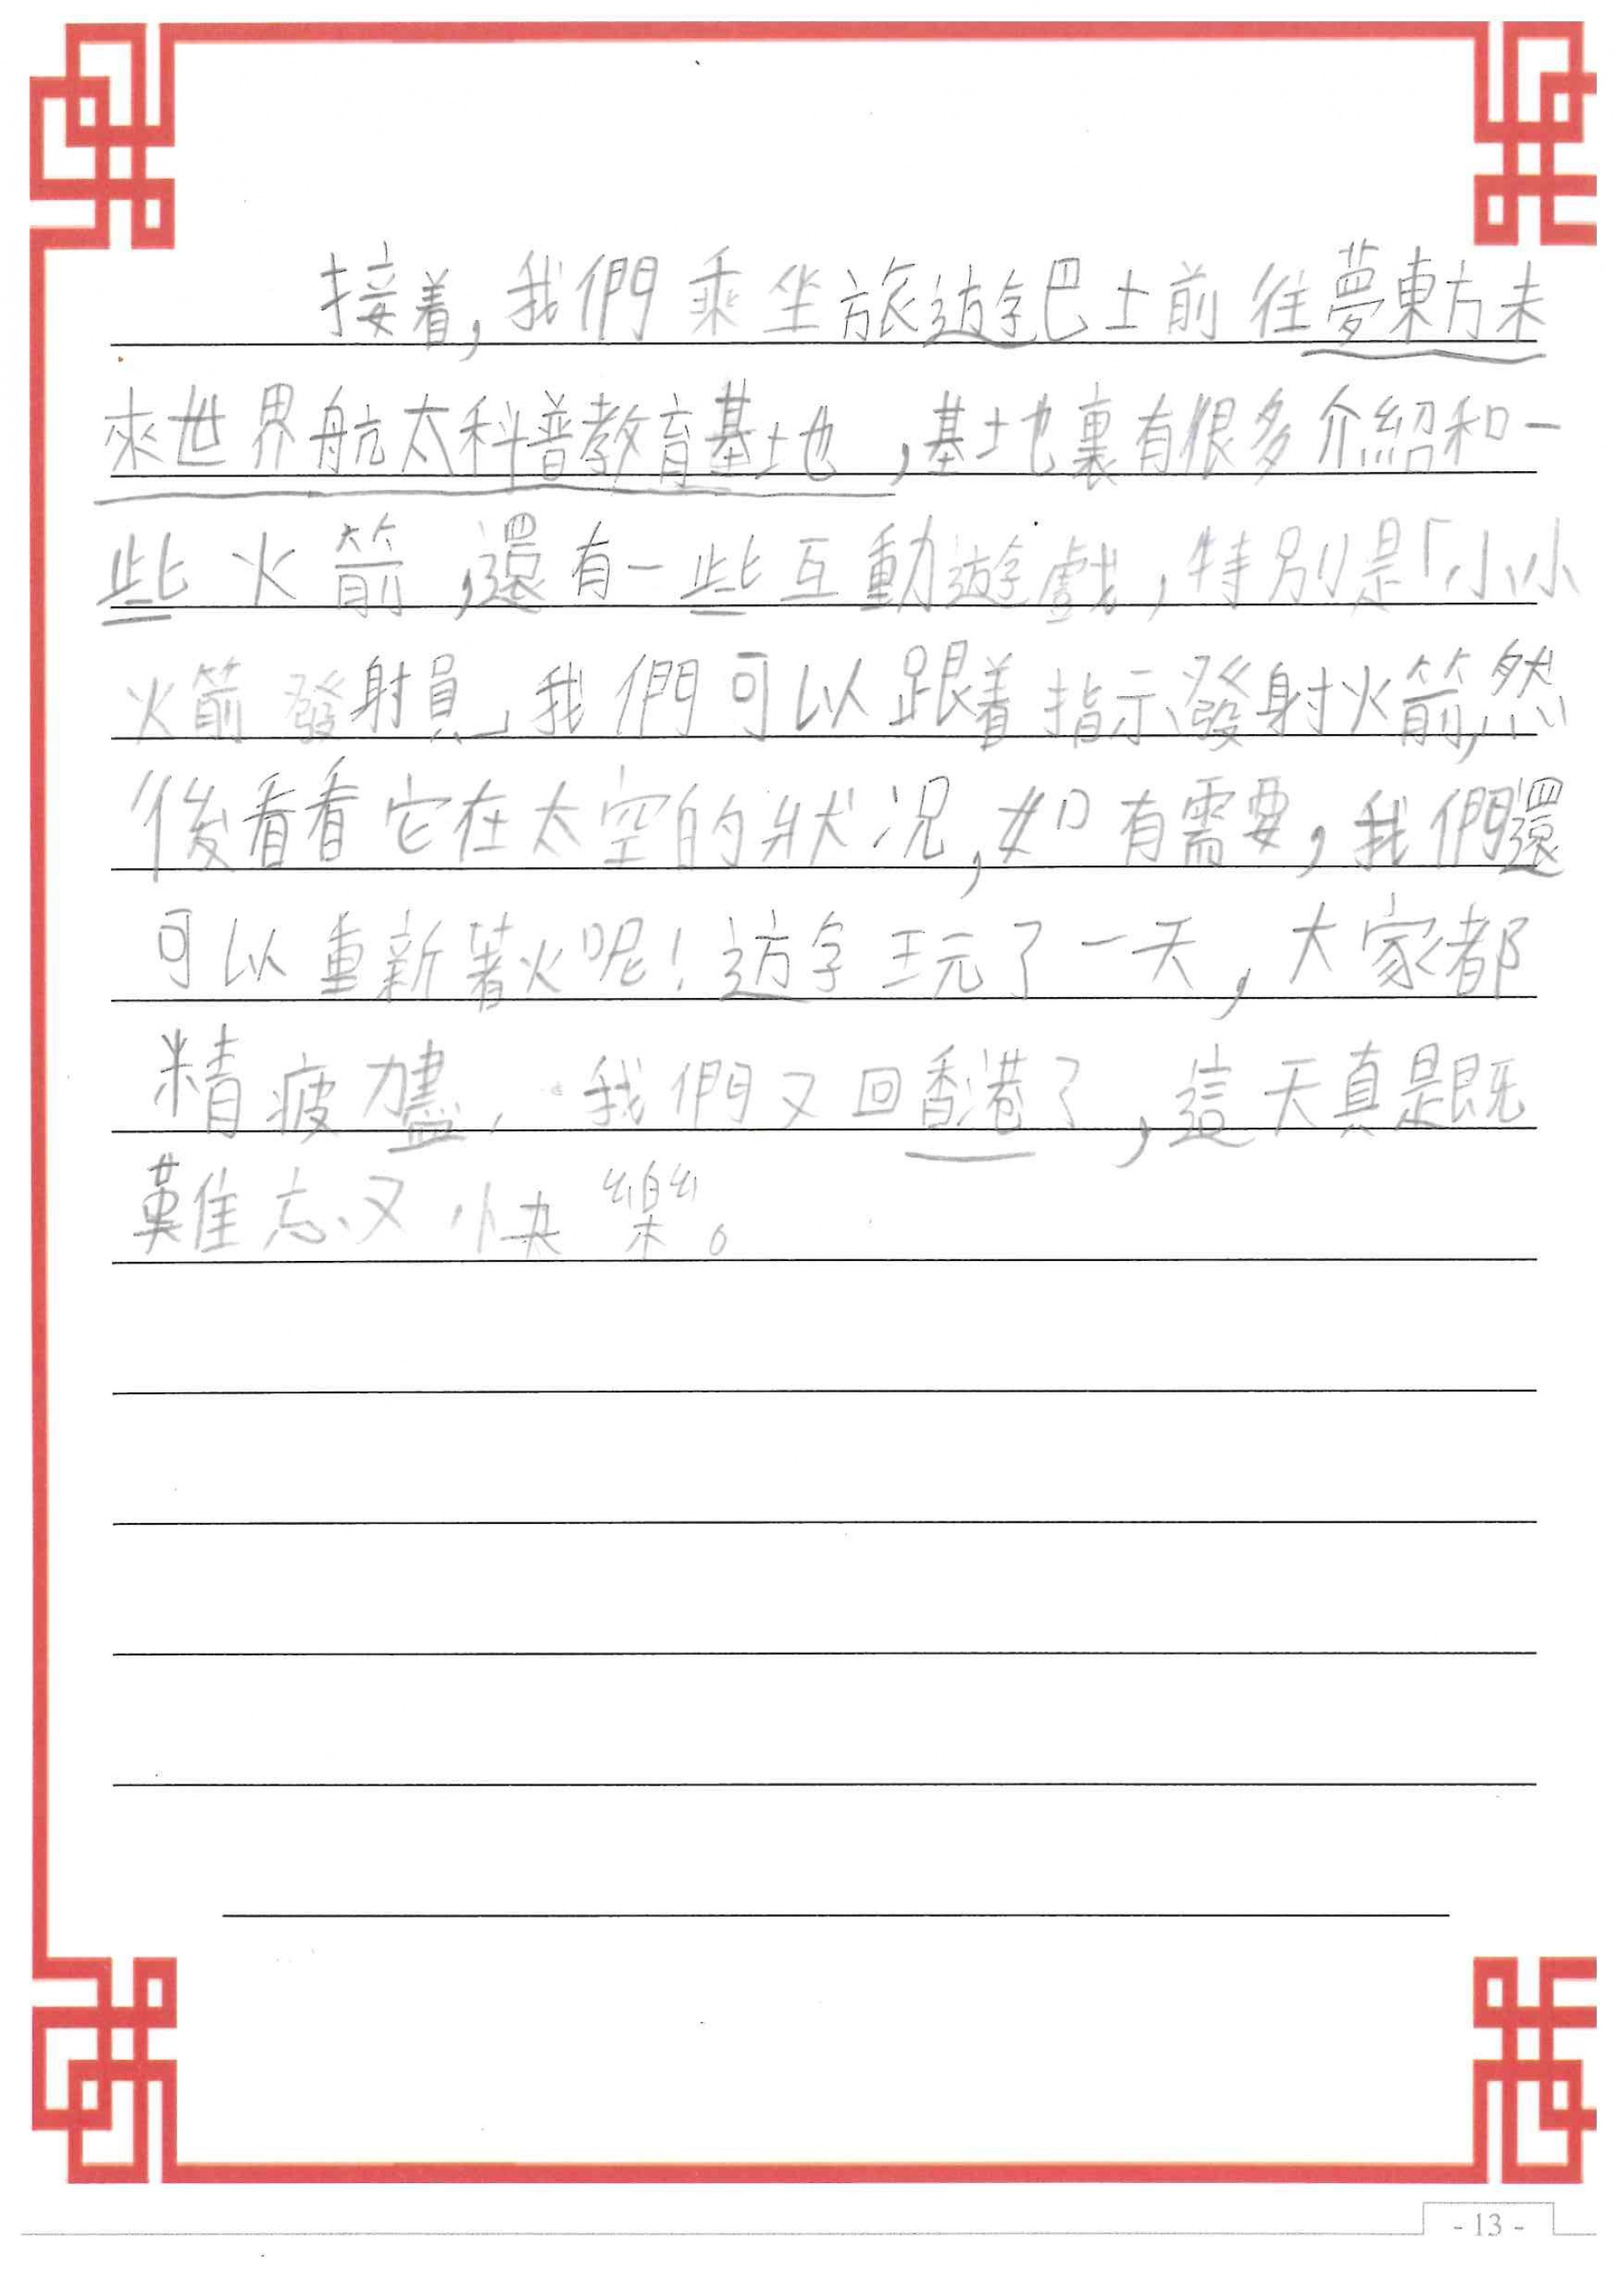 接着，我們乘坐旅遊巴士前往夢東方未
來世界航太科普教育基地，基地裏有很多介紹和一
些火箭，還有一些互動遊戲，特別是「小小
火箭發射員」我們可以跟着指示發射火箭，然
後看看它在太空的狀況，如有需要，我們還
可以重新着火呢！遊玩了一天，大家都
精疲力盡，我們又回香港了，這天真是既
難忘又快樂。
- 13 -